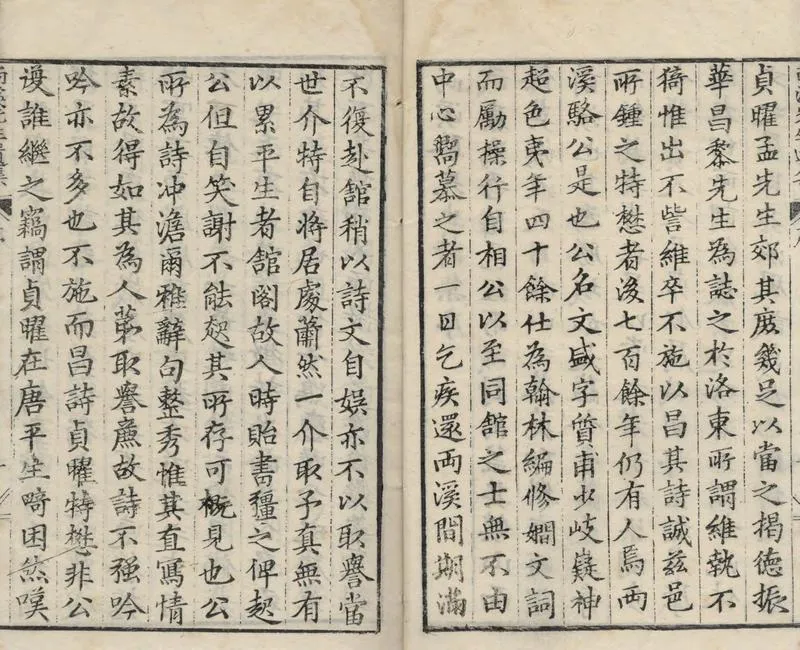 貞曜孟先生郊其庶幾足以當之揭德振
華昌黎先生為誌之於洛東所謂維執不
猗惟出不訾維卒不施以昌其詩誠兹邑
所鍾之特懋者後七百餘年仍有人焉兩
溪駱公是也公名文盛字質甫少岐嶷神
起色夷年四十餘仕為翰林編修嫺文詞
而勵操行自相公以至同館之士無不由
中心嚮慕之者一日乞疾還兩溪間期滿
不復赴舘稍以詩文自娛亦不以取譽當
世介特自將居處蕭然一介取予真無有
以累平生者舘閣故人時貽書彊之俾起
公但自笑謝不能起其所存可概見也公
所為詩冲澹爾雅辭句整秀惟其直寫情
素故得如其為人苐取譽薦故詩不强吟
吟亦不多也不施而昌詩貞曜特懋非公
其誰繼之竊謂貞曜在唐平生畸困然嘆